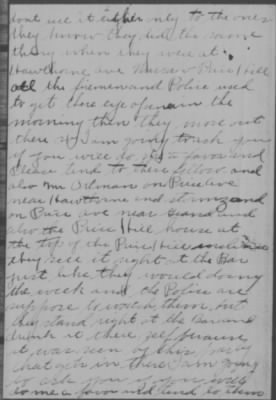 dont use it either only to the ones
they know they did the same
thing when they were at
Hawthorne ave Price Hill
all the firemen and Police used
to get there eye opener in the
morning then they more out
there if I am going to ask you
if you will do me a favor and
Please tend to these fellow and
also Mr Ortman on Price ave
near Hawthorne and storms and
on Price ave near Grand and
also the Price Hill house at
the top of the Price Hill incline
they sell it right at the Bar
just like they would doing
the week and the Police are
suppose to watch them but
they stand right at the Bar and
drink it there self because
it was seen by this party
that gets in there I am going
to ask you if you will
to me a favor and tend to them